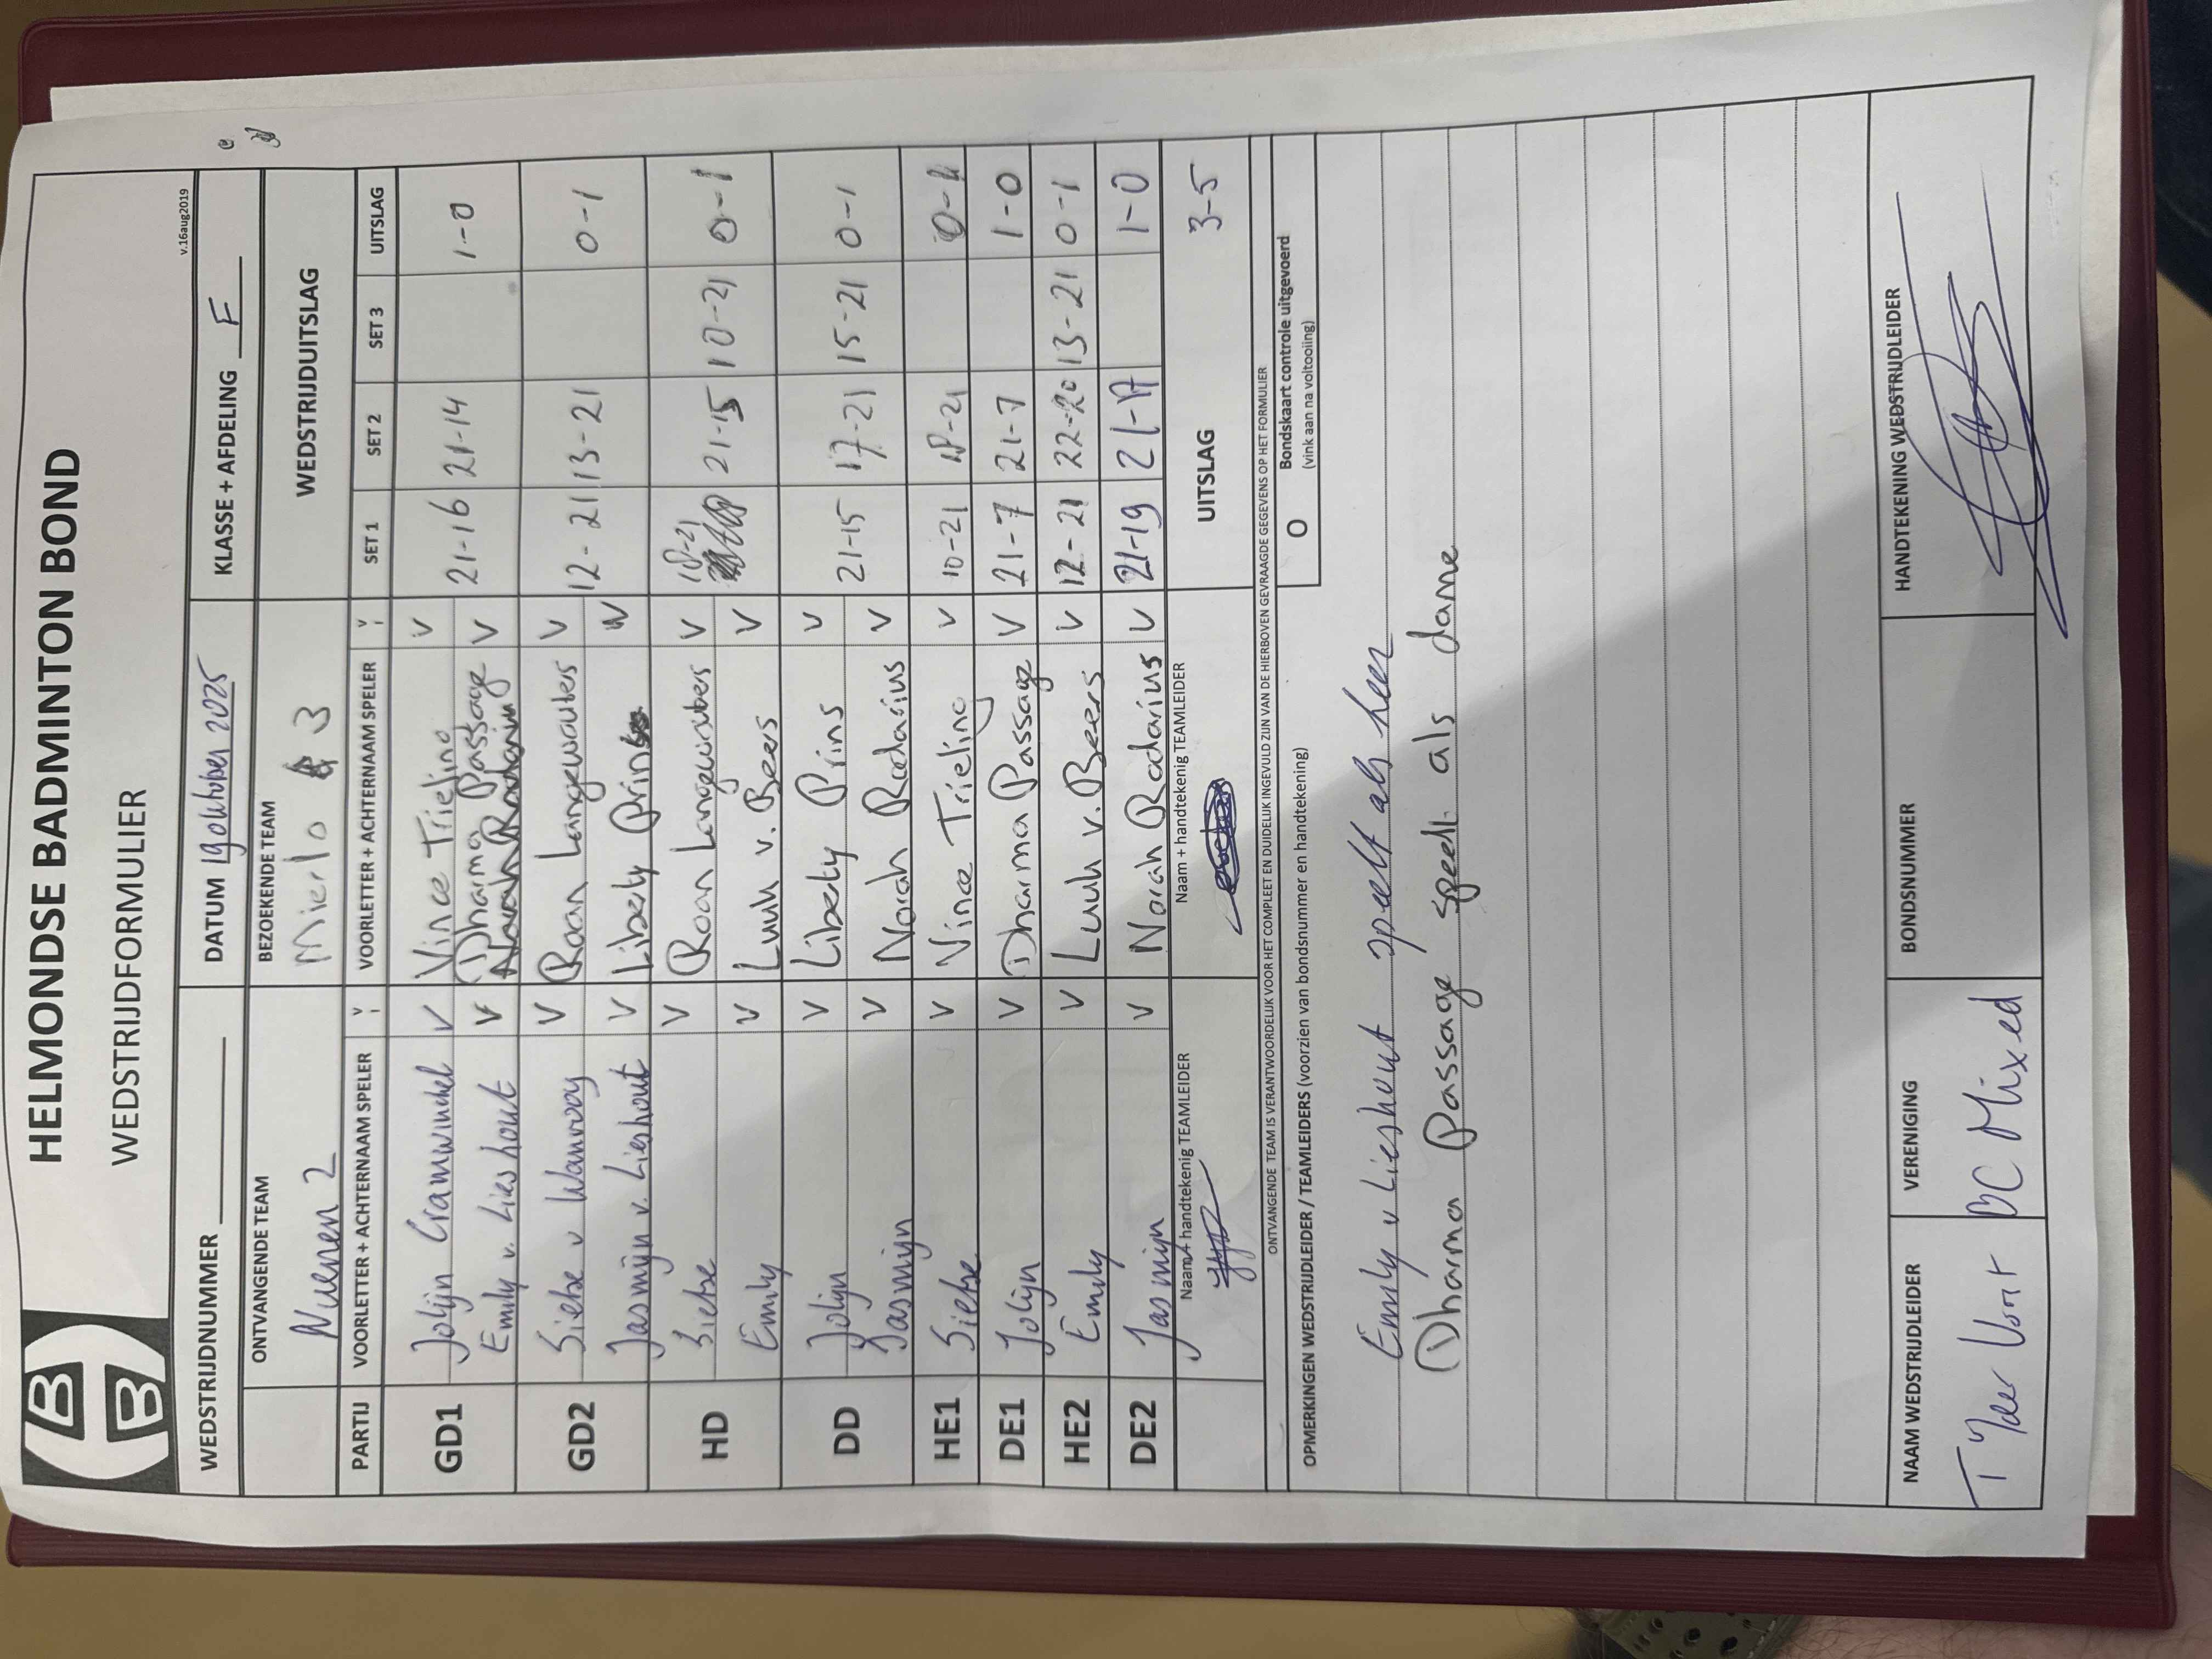 HELMONDSE BADMINTON BOND
WEDSTRIJDFORMULIER
v.16aug2019
WEDSTRIJDNUMMER DATUM 19 oktober 2025 KLASSE + AFDELING F
ONTVANGENDE TEAM BEZOEKENDE TEAM WEDSTRIJDUITSLAG
Nuenen 2 Mierlo 3
PARTIJ VOORLETTER + ACHTERNAAM SPELER V VOORLETTER + ACHTERNAAM SPELER V SET 1 SET 2 SET 3 UITSLAG
GD1 Jolijn Cranwinckel V Vince Trieling V 21-16 21-14 1-0
Emily v. Lieshout V Dharma Passage V
GD2 Sietse v Wanrooy V Roan Langewouters V 12-21 13-21 0-1
Jasmijn v. Lieshout V Liberty Prins V
HD Sietse V Roan Langewouters V 18-21 21-15 10-21 0-1
Emily V Luuk v. Beers V
DD Jolijn V Liberty Prins V 21-15 17-21 15-21 0-1
Jasmijn V Norah Radarius V
HE1 Sietse V Vince Trieling V 10-21 18-21 0-1
DE1 Jolijn V Dharma Passage V 21-7 21-7 1-0
HE2 Emily V Luuk v. Beers V 12-21 22-20 13-21 0-1
DE2 Jasmijn V Norah Radarius V 21-19 21-17 1-0
Naam + handtekenig TEAMLEIDER Naam + handtekenig TEAMLEIDER UITSLAG 3-5
ONTVANGENDE TEAM IS VERANTWOORDELIJK VOOR HET COMPLEET EN DUIDELIJK INGEVULD ZIJN VAN DE HIERBOVEN GEVRAAGDE GEGEVENS OP HET FORMULIER
OPMERKINGEN WEDSTRIJDLEIDER / TEAMLEIDERS (voorzien van bondsnummer en handtekening) O Bondskaart controle uitgevoerd
(vink aan na voltooiing)
Emily v Lieshout speelt als heer
Dharma Passage speelt als dame
NAAM WEDSTRIJDLEIDER VERENIGING BONDSNUMMER HANDTEKENING WEDSTRIJDLEIDER
BC Mixed